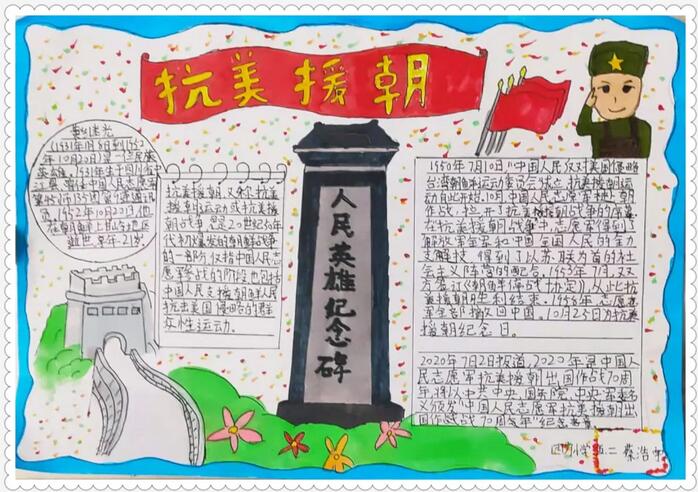 抗美援朝
黄继光
(1931年1月8日到1952
年10月20日)是一位民族
英雄。1931年生于四川省中
江县。
1952年10月20日,他
在朝鲜上甘岭地区
逝世,享年21岁。
抗美援朝,又称抗美援
朝运动或抗美援
朝战争,是20世纪50年
代初爆发的朝鲜战争
的一部分,仅指中国人民志
愿军参战的阶段,也包括
中国人民支援朝鲜人民
抗击美国侵略的群
众性运动。
人民英雄纪念碑
1950年7月10日,“中国人民反对美国侵略
台湾朝鲜运动委员会”成立,抗美援朝运
动自此开始。10月,中国人民志愿军赴朝
作战,拉开了抗美援朝战争的序幕。
在抗美援朝战争中,志愿军得到了
解放军全军和中国全国人民的全力
支援,得到了以苏联为首的社
会主义阵营的配合。1953年7月,双
方签订《朝鲜停战协定》,从此抗
美援朝胜利结束。1958年,志愿
军全部撤回中国。10月25日为抗美
援朝纪念日。
2020年7月2日报道,2020年是中国人
民志愿军抗美援朝出国作战70周
年,将以中共中央、国务院、中央军委名
义颁发“中国人民志愿军抗美援朝出
国作战70周年”纪念章。
小学五.二 蔡浩宇